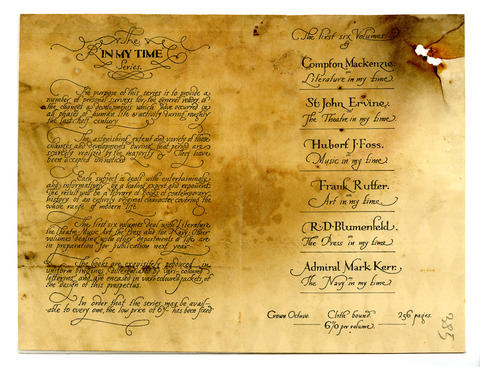 The
IN MY TIME
Series.
The purpose of this series is to provide a
number of personal surveys for the general reader of
the changes & developments which have occurred in
all phases of human life & activity during roughly
the last half century
The astonishing extent and variety of those
changes and developments during that period are
scarcely realized by the majority They have
been accepted unnoticed
Each subject is dealt with entertainingly
and informatively by a leading expert and exponent
the result will be a library of books of contemporary
history of an entirely original character covering the
whole range of modern life
The first six volumes deal with Literature,
the Theatre, Music, Art, the Press and the Navy. Other
volumes dealing with other departments of life are
in preparation for publication next year
The books are exquisitely produced in
uniform bindings, lettered
jackets of
the design of this prospectus.
In order that the series may be avail-
able to every one, the low price of 6/- has been fixed
The first six Volumes
by
Compton Mackenzie.
on
Literature in my time.
St John Ervine.
on
The Theatre in my time.
Hubert J. Foss.
on
Music in my time.
Frank Rutter.
on
Art in my time.
R. D. Blumenfeld.
on
The Press in my time.
Admiral Mark Kerr.
on
The Navy in my time.
Crown Octavo. Cloth bound. 256 pages.
6/0 per volume.
385